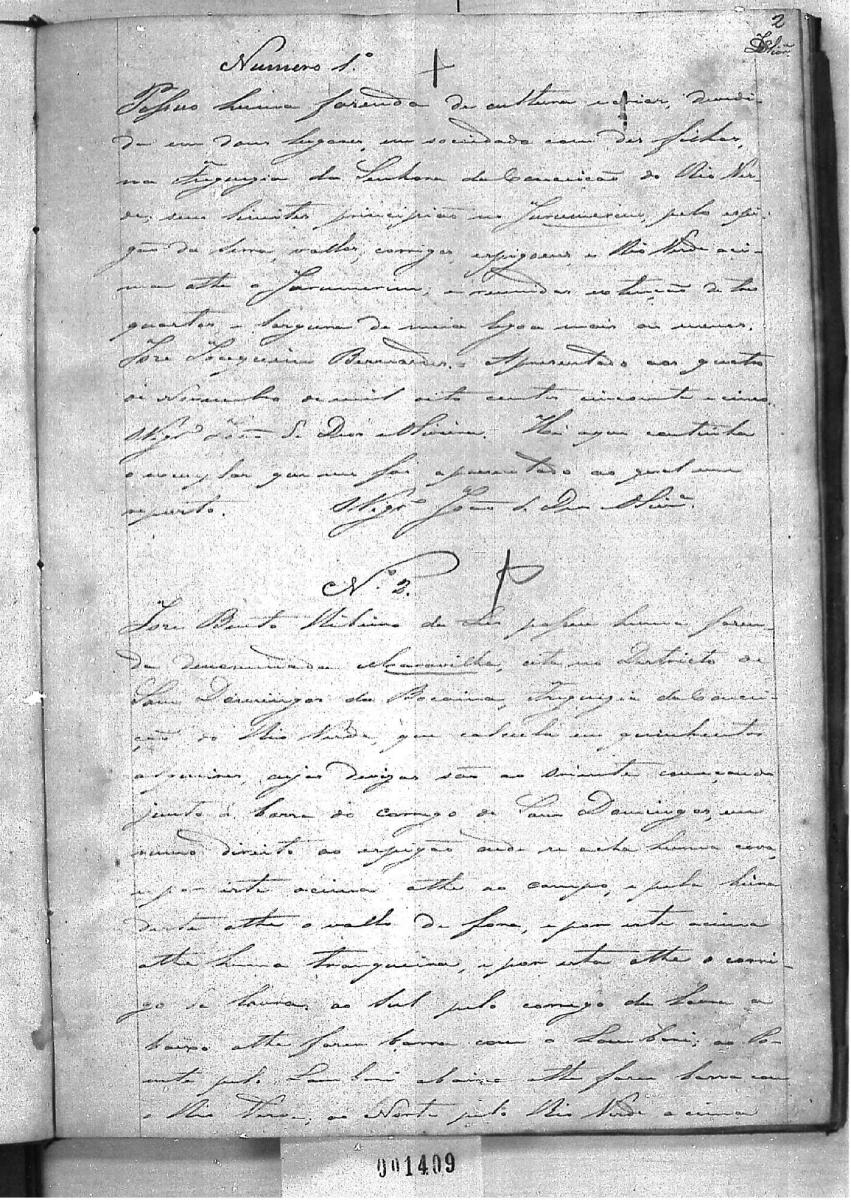 2
Numero 1.º
Possuo huma fazenda de cultura e criar, devidi-
da em dous lugares, em sociedade com des filhos,
na Freguezia da Senhora da Conceição do Rio Ver-
de; seus limites principião no Jurumerim, pelo espi-
gão da Serra, vallos, corrigos, espigoens, e Rio Verde aci-
ma athe o Jurumerim; e reunidas extenção de tres
quartos e largura de meia legoa mais ou menos.
Joze Joaquim Bernardes. Apresentado aos quatro
de Novembro de mil oito centos cincoenta e cinco.
Vigr.º João de Deos Oliveira. Hé o que continha
o exemplar que me foi apresentado ao qual me
reporto. Vigr.º João de Deos Olivr.ª
N.º 2.
Joze Bento Ribeiro da Luz possue huma fazen-
da denominada Maravilha, cita no Districto de
Sam Domingos da Bocaina, Freguezia da Concei-
ção do Rio Verde, que calcula em quinhentos
alqueires, cujas devizas são ao Oriente começando
junto á barra do corrego de Sam Domingos, em
rumo direito ao espigão onde se acha huma cova,
e por este acima athe ao campo, e pela beira
deste athe o vallo de fora, e por este acima
athe huma tranqueira, e por esta athe o corri-
go da lavra; ao Sul pelo corrego da lavra a
baixo athe fazer barra com o Lambari; ao Po-
ente pelo Lambari abaixo athe fazer barra com
o Rio Verde, ao Norte pelo Rio Verde acima
001409